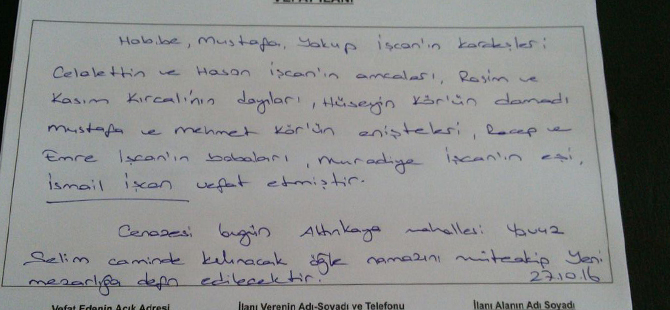 VEFAT İLANI
Habibe, Mustafa, Yakup İşcan'ın kardeşleri
Celalettin ve Hasan İşcan'ın amcaları, Rasim ve
Kasım Kırcalı'nın dayıları, Hüseyin Kör'ün damadı
Mustafa ve Mehmet Kör'ün enişteleri, Recep ve
Emre İşcan'ın babaları, Muradiye İşcan'ın eşi,
İsmail İşcan vefat etmiştir.
Cenazesi bugün Altınkaya mahallesi Yavuz
Selim camiinde kılınacak öğle namazını müteakip Yeni
mezarlığa defn edilecektir. 27.10.16
Vefat Edenin Açık Adresi İlanı Verenin Adı-Soyadı ve Telefonu İlanı Alanın Adı Soyadı